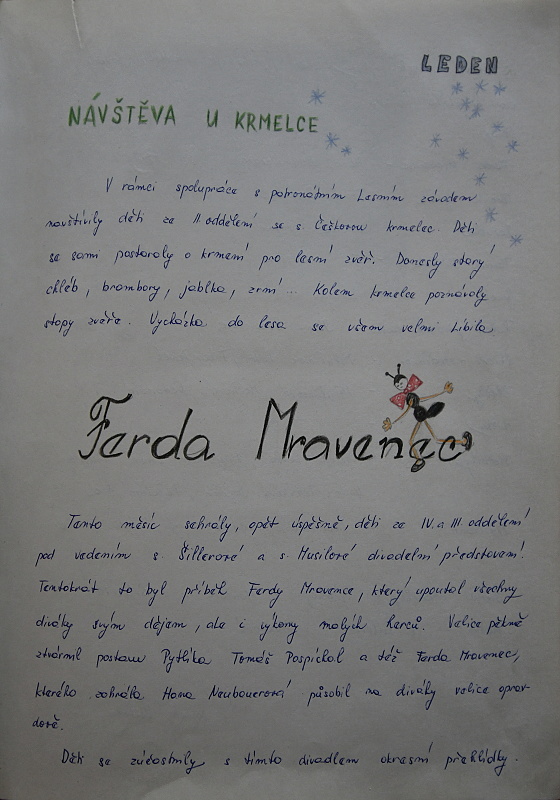 LEDEN
NÁVŠTĚVA U KRMELCE
V rámci spolupráce s patronátním Lesním závodem
navštívily děti ze II oddělení se s. Češkovou krmelec. Děti
se sami postaraly o krmení pro lesní zvěř. Donesly starý
chléb, brambory, jablka, zrní... Kolem krmelce poznávaly
stopy zvěře. Vycházka do lesa se všem velmi líbila
Ferda Mravenec
Tento měsíc sehrály, opět úspěšně, děti ze IV. a III oddělení
pod vedením s. Šillerové a s. Musilové divadelní představení.
Tentokrát to byl příběh Ferdy Mravence, který upoutal všechny
diváky svým dějem, ale i výkony malých herců. Velice pěkně
ztvárnil postavu Pytlíka Tomáš Pospíchal a též Ferda Mravenec,
kterého zahrála Hana Neubauerová působil na diváky velice oprav-
dově.
Děti se zúčastnily s tímto divadlem okresní přehlídky.